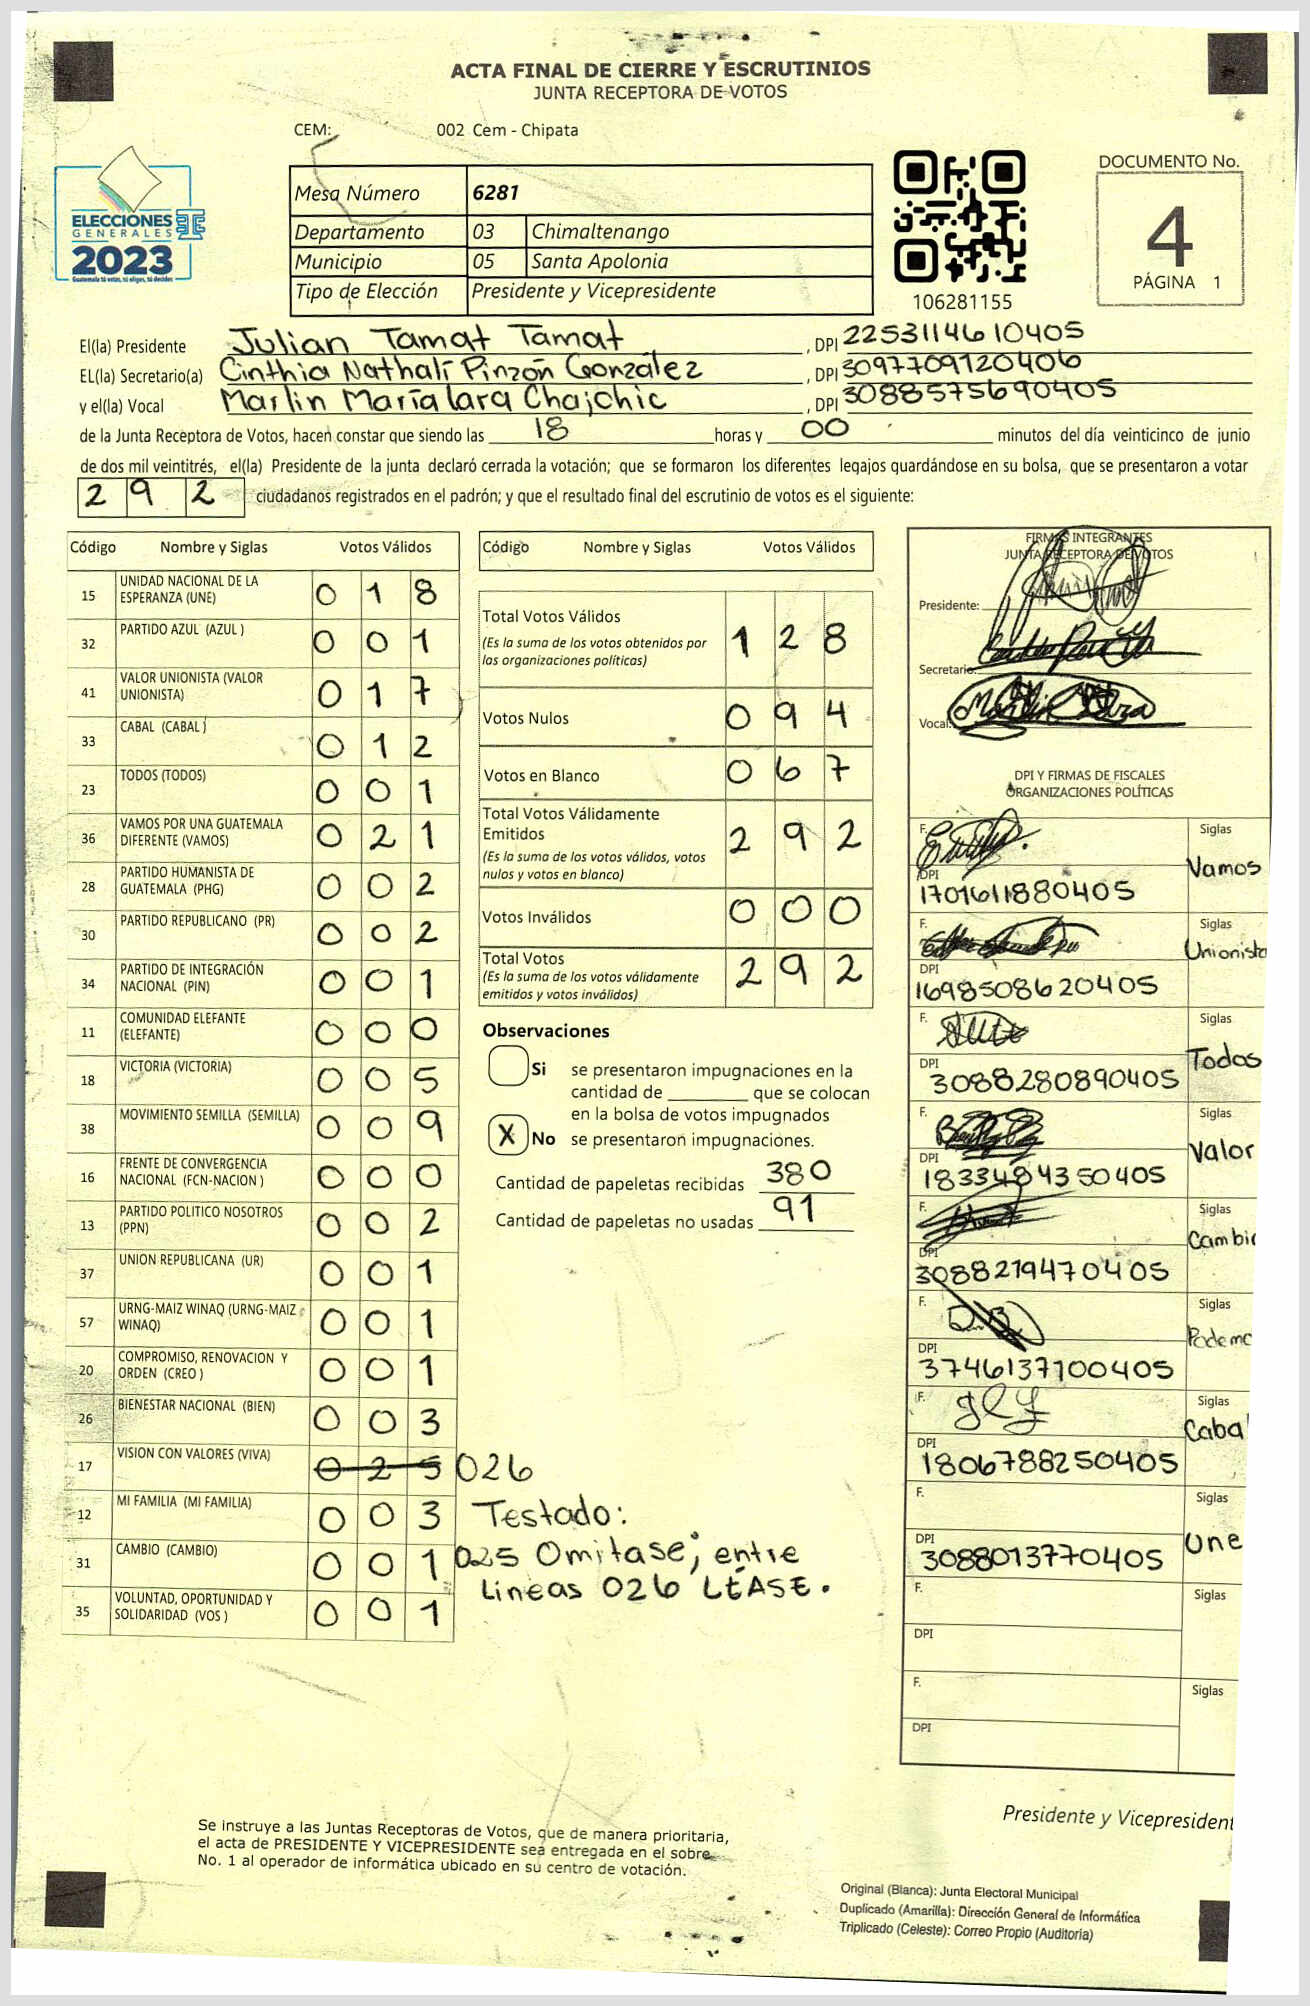 ACTA FINAL DE CIERRE Y ESCRUTINIOS
JUNTA RECEPTORA DE VOTOS
CEM: 002 Cem - Chipata
ELECCIONES
GENERALES
2023
Guatemala tú votas, tú eliges, tú decides
Mesa Número 6281
Departamento 03 Chimaltenango
Municipio 05 Santa Apolonia
Tipo de Elección Presidente y Vicepresidente
106281155
DOCUMENTO No.
4
PÁGINA 1
El(la) Presidente Julian Tamat Tamat , DPI 2253114610405
EL(la) Secretario(a) Cinthia Nathalí Pinzón González , DPI 3097709120406
y el(la) Vocal Marlin María Lara Chajchic , DPI 3088575690405
de la Junta Receptora de Votos, hacen constar que siendo las 18 horas y 00 minutos del día veinticinco de junio
de dos mil veintitrés, el(la) Presidente de la junta declaró cerrada la votación; que se formaron los diferentes legajos guardándose en su bolsa, que se presentaron a votar
292 ciudadanos registrados en el padrón; y que el resultado final del escrutinio de votos es el siguiente:
Código Nombre y Siglas Votos Válidos
15 UNIDAD NACIONAL DE LA ESPERANZA (UNE) 0 1 8
32 PARTIDO AZUL (AZUL ) 0 0 1
41 VALOR UNIONISTA (VALOR UNIONISTA) 0 1 7
33 CABAL (CABAL ) 0 1 2
23 TODOS (TODOS) 0 0 1
36 VAMOS POR UNA GUATEMALA DIFERENTE (VAMOS) 0 2 1
28 PARTIDO HUMANISTA DE GUATEMALA (PHG) 0 0 2
30 PARTIDO REPUBLICANO (PR) 0 0 2
34 PARTIDO DE INTEGRACIÓN NACIONAL (PIN) 0 0 1
11 COMUNIDAD ELEFANTE (ELEFANTE) 0 0 0
18 VICTORIA (VICTORIA) 0 0 5
38 MOVIMIENTO SEMILLA (SEMILLA) 0 0 9
16 FRENTE DE CONVERGENCIA NACIONAL (FCN-NACION ) 0 0 0
13 PARTIDO POLITICO NOSOTROS (PPN) 0 0 2
37 UNION REPUBLICANA (UR) 0 0 1
57 URNG-MAIZ WINAQ (URNG-MAIZ WINAQ) 0 0 1
20 COMPROMISO, RENOVACION Y ORDEN (CREO ) 0 0 1
26 BIENESTAR NACIONAL (BIEN) 0 0 3
17 VISION CON VALORES (VIVA) 0 2 5 026
12 MI FAMILIA (MI FAMILIA) 0 0 3
31 CAMBIO (CAMBIO) 0 0 1
35 VOLUNTAD, OPORTUNIDAD Y SOLIDARIDAD (VOS ) 0 0 1
Testado:
025 Omitase; entre
lineas 026 LÉASE.
Código Nombre y Siglas Votos Válidos
Total Votos Válidos 1 2 8
(Es la suma de los votos obtenidos por
las organizaciones políticas)
Votos Nulos 0 9 4
Votos en Blanco 0 6 7
Total Votos Válidamente
Emitidos 2 9 2
(Es la suma de los votos válidos, votos
nulos y votos en blanco)
Votos Inválidos 0 0 0
Total Votos 2 9 2
(Es la suma de los votos válidamente
emitidos y votos inválidos)
Observaciones
Si se presentaron impugnaciones en la
cantidad de ________ que se colocan
en la bolsa de votos impugnados
X No se presentaron impugnaciones.
Cantidad de papeletas recibidas 380
Cantidad de papeletas no usadas 91
FIRMAS INTEGRANTES
JUNTA RECEPTORA DE VOTOS
Presidente:
Secretario:
Vocal:
DPI Y FIRMAS DE FISCALES
ORGANIZACIONES POLÍTICAS
F. Siglas Vamos
DPI 1701611880405
F. Siglas Unionista
DPI 1698508620405
F. Siglas Todos
DPI 3088280890405
F. Siglas Valor
DPI 1833484350405
F. Siglas Cambio
DPI 3088219470405
F. Siglas Podemo
DPI 3746137100405
F. Siglas Cabal
DPI 1806788250405
F. Siglas Une
DPI 3088013770405
F. Siglas
DPI
F. Siglas
DPI
Presidente y Vicepresident
Se instruye a las Juntas Receptoras de Votos, que de manera prioritaria,
el acta de PRESIDENTE Y VICEPRESIDENTE sea entregada en el sobre
No. 1 al operador de informática ubicado en su centro de votación.
Original (Blanca): Junta Electoral Municipal
Duplicado (Amarilla): Dirección General de Informática
Triplicado (Celeste): Correo Propio (Auditoria)